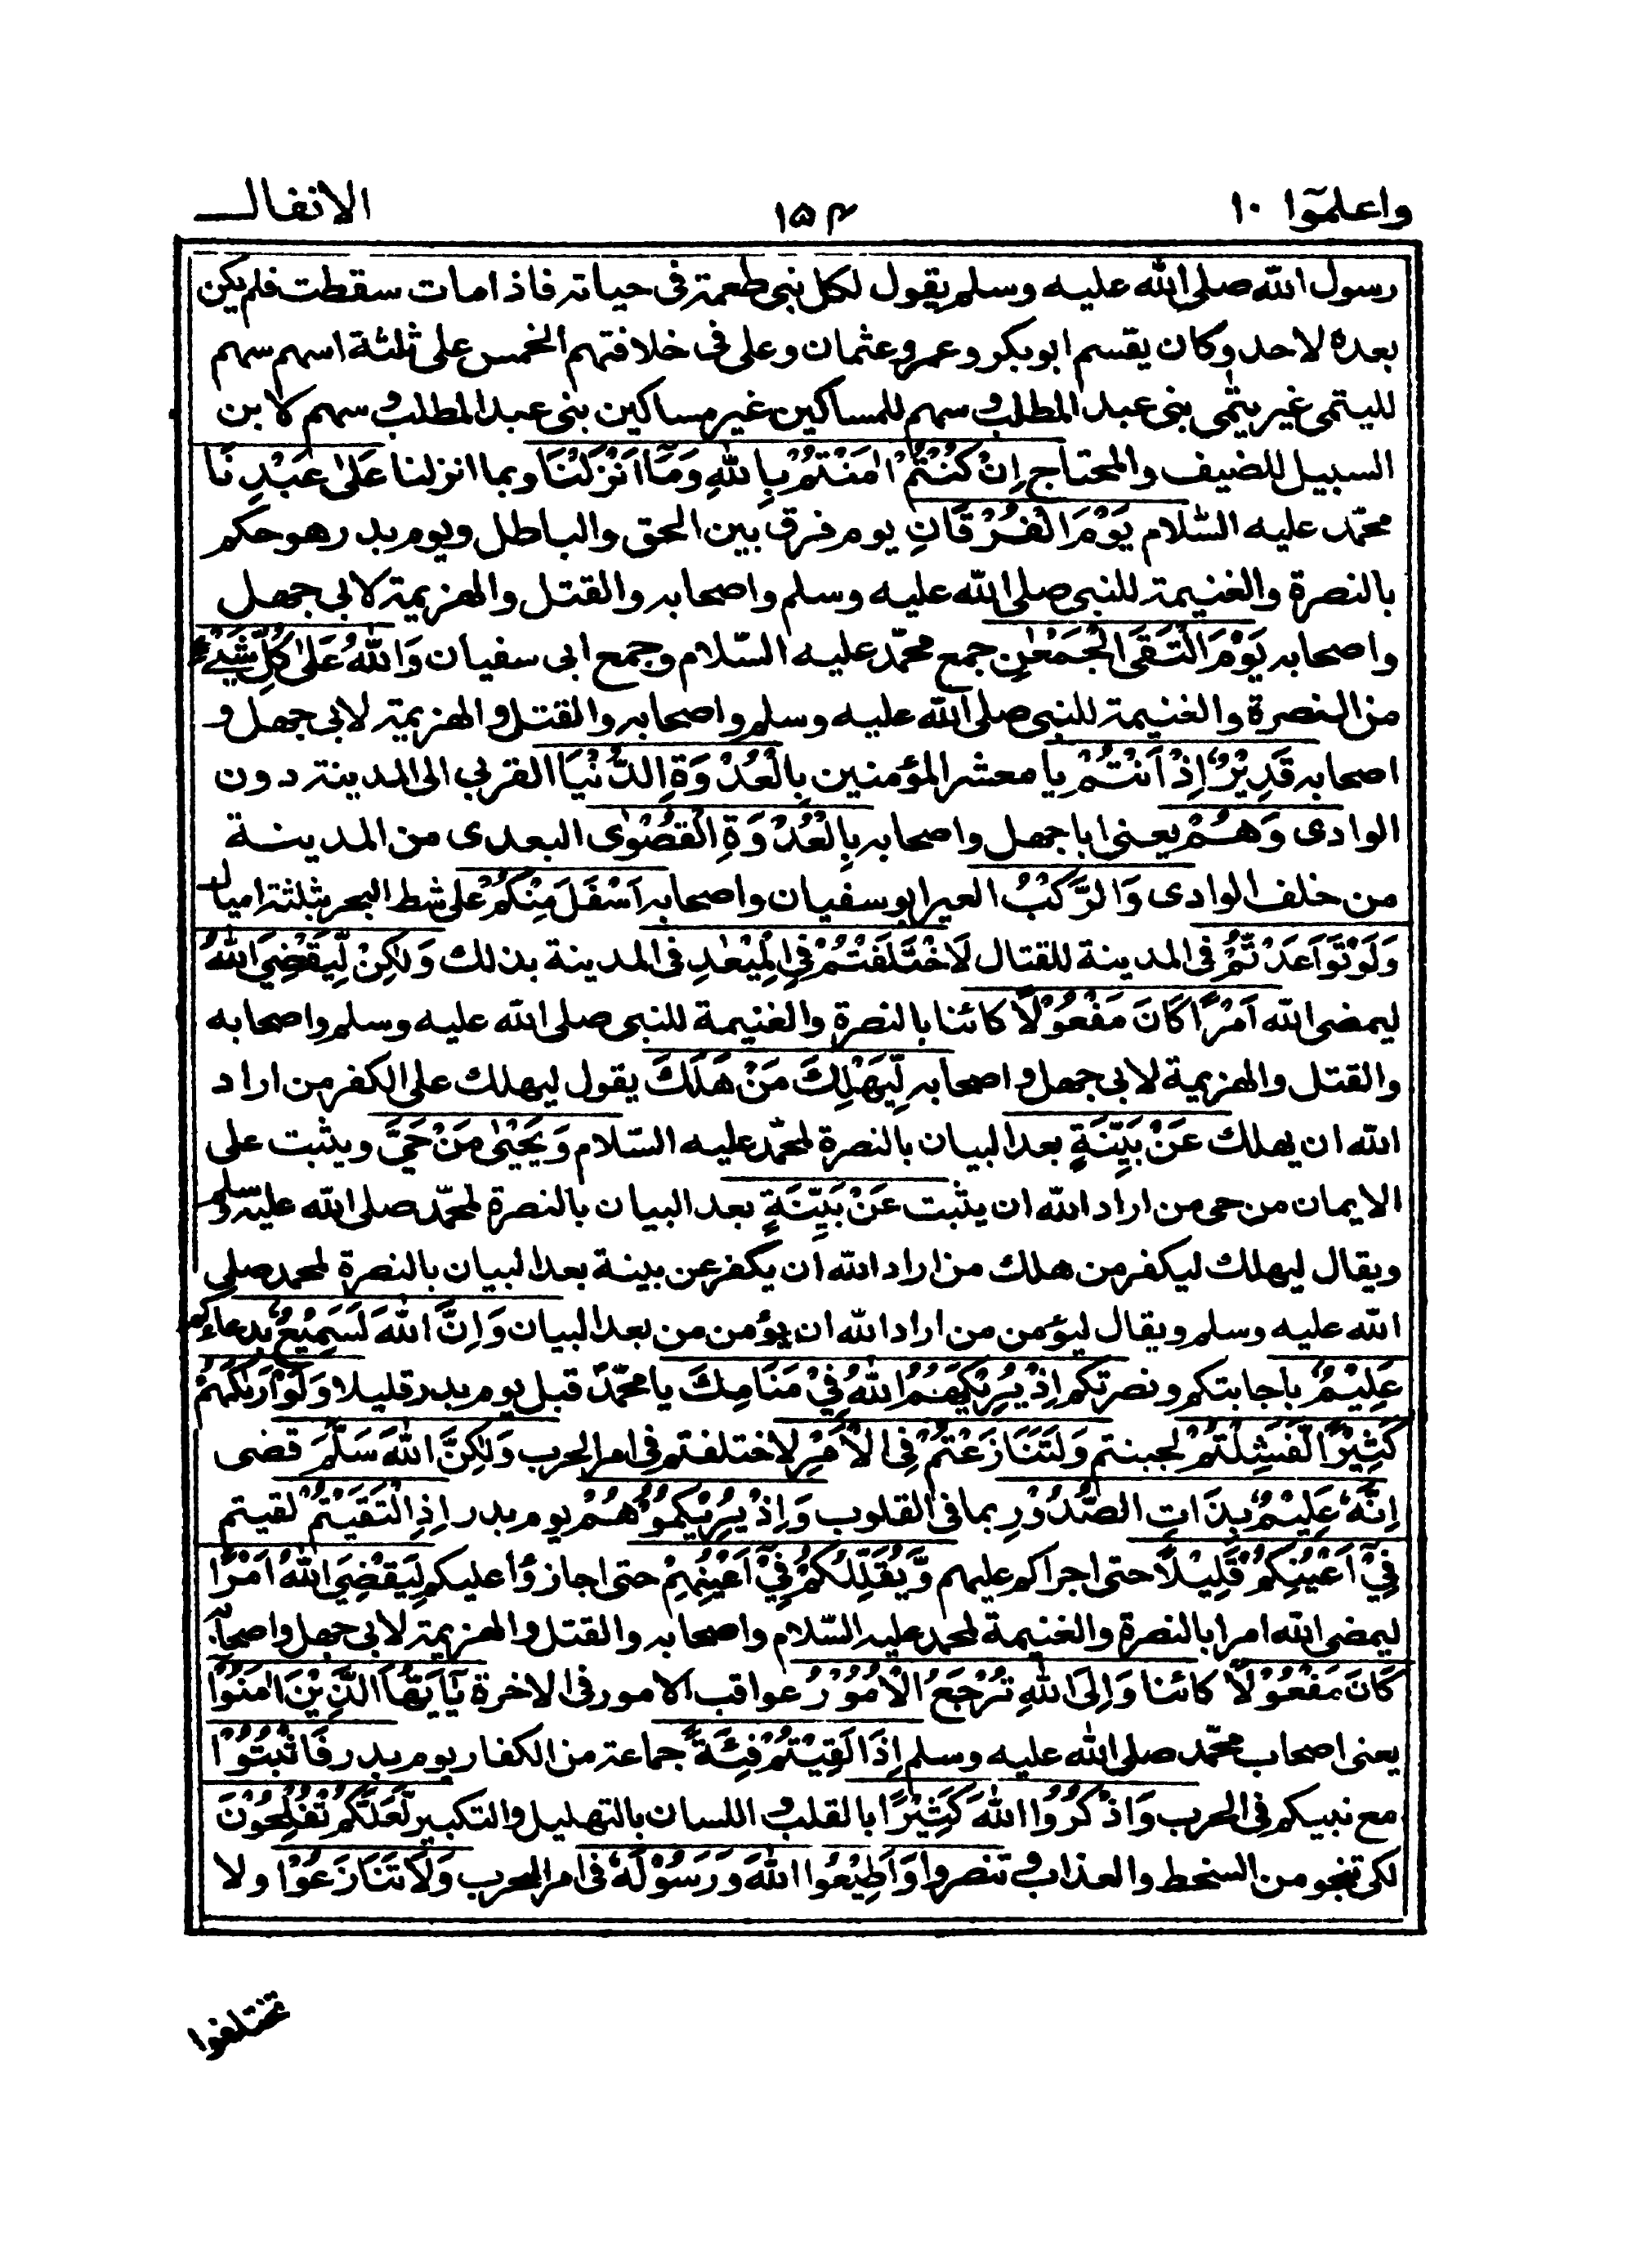 واعلموٓا ١٠
١٥٣
الانفال
رسول الله صلى الله عليه وسلم يقول لكل نبى طعمة فى حياته فاذا مات سقطت فلم يكن
بعده لاحد وكان يقسم ابوبكر وعمر وعثمان وعلى فى خلافتهم الخمس على ثلثة اسهم سهم
لليتمى غير يتٰمى بنى عبد المطلب و سهم للمساكين غير مساكين بنى عبد المطلب و سهم لابن
السبيل للضيف والمحتاج اِنْ كُنْتُمْ اٰمَنْتُمْ بِاللّٰهِ وَمَآ اَنْزَلْنَا وبما انزلنا عَلٰى عَبْدِنَا
محمّد عليه السّلام يَوْمَ الْفُرْقَانِ يوم فرق بين الحق والباطل ويوم بدر هو حكم
بالنصرة والغنيمة للنبى صلى الله عليه وسلم واصحابه والقتل والهزيمة لابى جهل
واصحابه يَوْمَ الْتَقَى الْجَمْعٰنِ جمع محمّد عليه السّلام وجمع ابى سفيان وَاللّٰهُ عَلٰى كُلِّ شَيْءٍ
من النصرة والغنيمة للنبى صلى الله عليه وسلم واصحابه والقتل والهزيمة لابى جهل و
اصحابه قَدِيْرٌ اِذْ اَنْتُمْ يا معشر المؤمنين بِالْعُدْوَةِ الدُّنْيَا القربى الى المدينة دون
الوادى وَهُمْ يعنى ابا جهل واصحابه بِالْعُدْوَةِ الْقُصْوٰى البعدى من المدينة
من خلف الوادى وَالرَّكْبُ العير ابوسفيان واصحابه اَسْفَلَ مِنْكُمْ على شط البحر بثلثة اميال
وَلَوْ تَوَاعَدْتُّمْ فى المدينة للقتال لَاخْتَلَفْتُمْ فِى الْمِيْعٰدِ فى المدينة بذلك وَلٰكِنْ لِّيَقْضِيَ اللّٰهُ
ليمضى الله اَمْرًا كَانَ مَفْعُوْلًا كائنا بالنصرة والغنيمة للنبى صلى الله عليه وسلم واصحابه
والقتل والهزيمة لابى جهل و اصحابه لِّيَهْلِكَ مَنْ هَلَكَ يقول ليهلك على الكفر من اراد
الله ان يهلك عَنْ بَيِّنَةٍ بعد البيان بالنصرة لمحمّد عليه السّلام وَيَحْيٰى مَنْ حَيَّ ويثبت على
الايمان من حى من اراد الله ان يثبت عَنْ بَيِّنَةٍ بعد البيان بالنصرة لمحمّد صلى الله عليه وسلم
ويقال ليهلك ليكفر من هلك من اراد الله ان يكفر عن بينة بعد البيان بالنصرة لمحمد صلى
الله عليه وسلم ويقال ليؤمن من اراد الله ان يؤمن من بعد البيان وَاِنَّ اللّٰهَ لَسَمِيْعٌ بدعاءكم
عَلِيْمٌ باجابتكم ونصرتكم اِذْ يُرِيْكَهُمُ اللّٰهُ فِيْ مَنَامِكَ يا محمّد قبل يوم بدر قليلا وَلَوْ اَرٰىكَهُمْ
كَثِيْرًا لَّفَشِلْتُمْ لجبنتم وَلَتَنَازَعْتُمْ فِى الْاَمْرِ لاختلفتم فى امر الحرب وَلٰكِنَّ اللّٰهَ سَلَّمَ قضى
اِنَّهٗ عَلِيْمٌ بِذَاتِ الصُّدُوْرِ بما فى القلوب وَاِذْ يُرِيْكُمُوْهُمْ يوم بدر اِذِ الْتَقَيْتُمْ لقيتم
فِيْٓ اَعْيُنِكُمْ قَلِيْلًا حتى اجراكم عليهم وَّيُقَلِّلُكُمْ فِيْٓ اَعْيُنِهِمْ حتى اجازؤا عليكم لِيَقْضِيَ اللّٰهُ اَمْرًا
ليمضى الله امرا بالنصرة والغنيمة لمحمد عليه السّلام واصحابه والقتل والهزيمة لابى جهل واصحابه
كَانَ مَفْعُوْلًا كائنا وَاِلَى اللّٰهِ تُرْجَعُ الْاُمُوْرُ عواقب الامور فى الاخرة يٰٓاَيُّهَا الَّذِيْنَ اٰمَنُوْٓا
يعنى اصحاب محمّد صلى الله عليه وسلم اِذَا لَقِيْتُمْ فِئَةً جماعة من الكفار يوم بدر فَاثْبُتُوْا
مع نبيكم فى الحرب وَاذْكُرُوا اللّٰهَ كَثِيْرًا بالقلب و اللسان بالتهليل والتكبير لَّعَلَّكُمْ تُفْلِحُوْنَ
لكى تنجو من السخط والعذاب و تنصروا وَاَطِيْعُوا اللّٰهَ وَرَسُوْلَهٗ فى امر الحرب وَلَا تَنَازَعُوْا ولا
تختلفوا